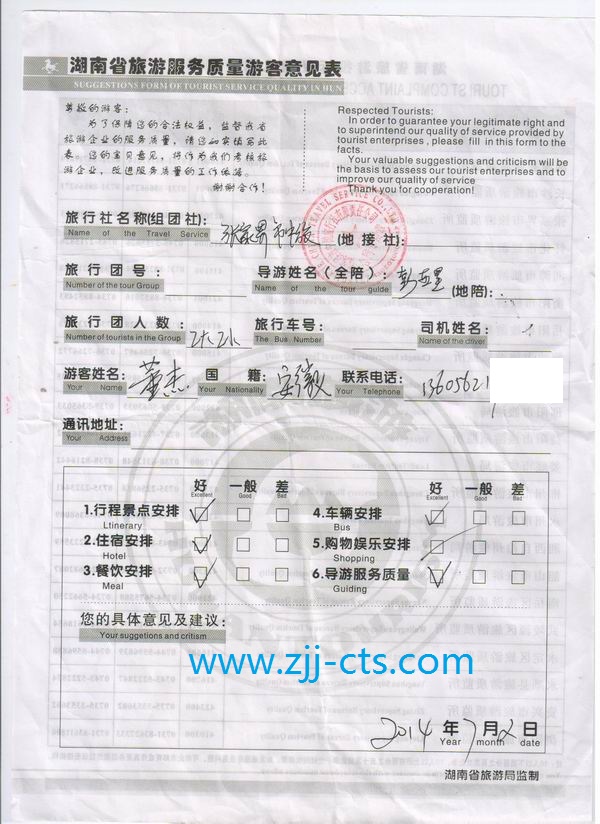 湖南省旅游服务质量游客意见表
SUGGESTIONS FORM OF TOURIST SERVICE QUALITY IN HUN
尊敬的游客：
为了保障您的合法权益，监督我省
旅游企业的服务质量，请您如实填写此
表。您的宝贵意见，将作为我们考核旅
游企业，改进服务质量的工作依据。
谢谢合作！
Respected Tourists:
In order to guarantee your legitimate right and
to superintend our quality of service provided by
tourist enterprises , please fill in this form to the
facts.
Your valuable suggestions and criticism will
be the basis to assess our tourist enterprises and to
improve our quality of service
Thank you for cooperation!
旅行社名称(组团社): 张家界中旅 (地接社):
Name of the Travel Service
旅行团号: 导游姓名(全陪): (地陪):
Number of the tour Group Name of the tour guide
旅行团人数: 旅行车号: 司机姓名:
Number of tourists in the Group The Bus Number Name of the driver
游客姓名: 董杰 国籍: 安徽 联系电话: 13605621
Your Name Your Nationality Your Telephone
通讯地址:
Your Address
好 一般 差 好 一般 差
Excellent Good Bad Excellent Good Bad
1.行程景点安排 4.车辆安排
Ltinerary Bus
2.住宿安排 5.购物娱乐安排
Hotel Shopping
3.餐饮安排 6.导游服务质量
Meal Guiding
您的具体意见及建议:
Your suggetions and critism
www.zjj-cts.com
2014年7月2日
Year month date
湖南省旅游局监制